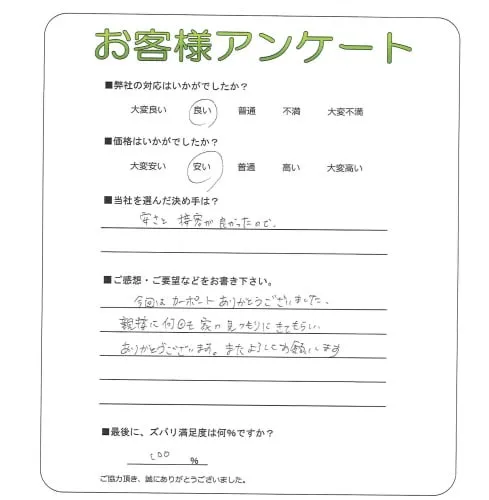 お客様アンケート
■弊社の対応はいかがでしたか？
大変良い 良い 普通 不満 大変不満
■価格はいかがでしたか？
大変安い 安い 普通 高い 大変高い
■当社を選んだ決め手は？
安さと 接客が良かったので、
■ご感想・ご要望などをお書き下さい。
今回は カーポート ありがとうございました、
親切に何回も 家の見つもりにきてもらい
ありがとうございます。またよろしくお願いします
■最後に、ズバリ満足度は何％ですか？
100 ％
ご協力頂き、誠にありがとうございました。